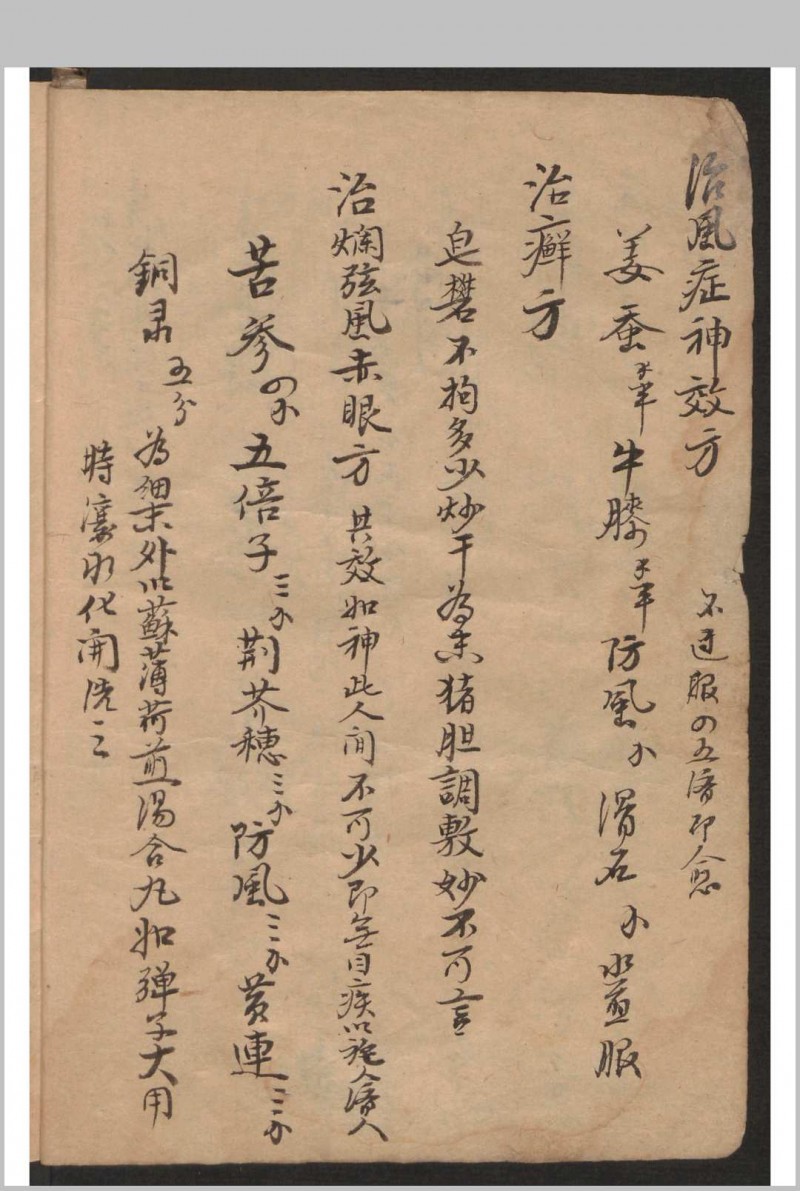 治風症神效方 不過服四五濟即愈
姜蚕 牛膝 防風 滑石 水煎服
治癬方
皂礬不拘多少炒干為末猪胆調敷妙不可言
治爛弦風赤眼方 其效如神此人间不可少即無目疾以施人濟人
苦參 五倍子三 荆芥穗三 防風三 黄連三
銅录五分 為細末外以蘇薄荷煎湯合丸如弹子大用
時 化開洗之